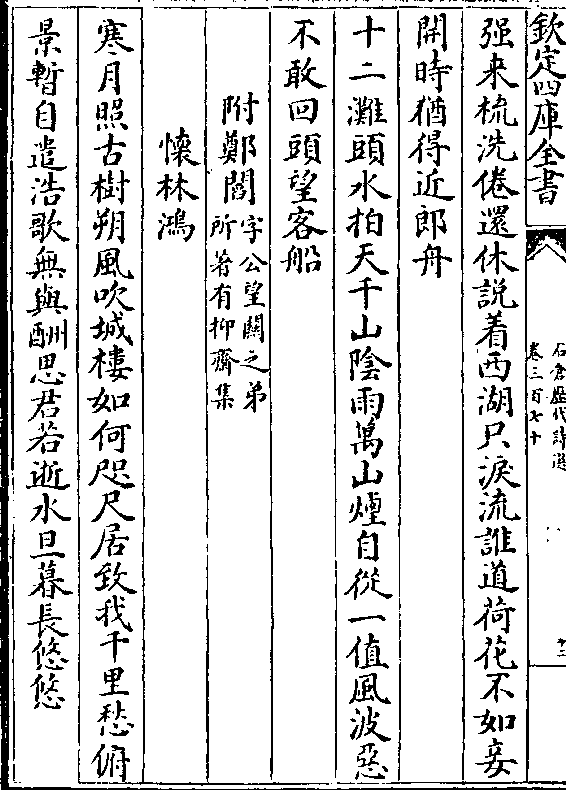 欽定四庫全書
石倉歷代詩選
卷三百七十
十二
强来梳洗倦還休説着西湖只淚流誰道荷花不如妾
開時猶得近郎舟
十二灘頭水拍天千山陰雨萬山煙自從一值風波惡
不敢回頭望客船
附鄭閻字公望關之弟
所著有抑齋集
懷林鴻
寒月照古樹朔風吹城樓如何咫尺居致我千里愁俯
景暫自遣浩歌無與酬思君若逝水旦暮長悠悠